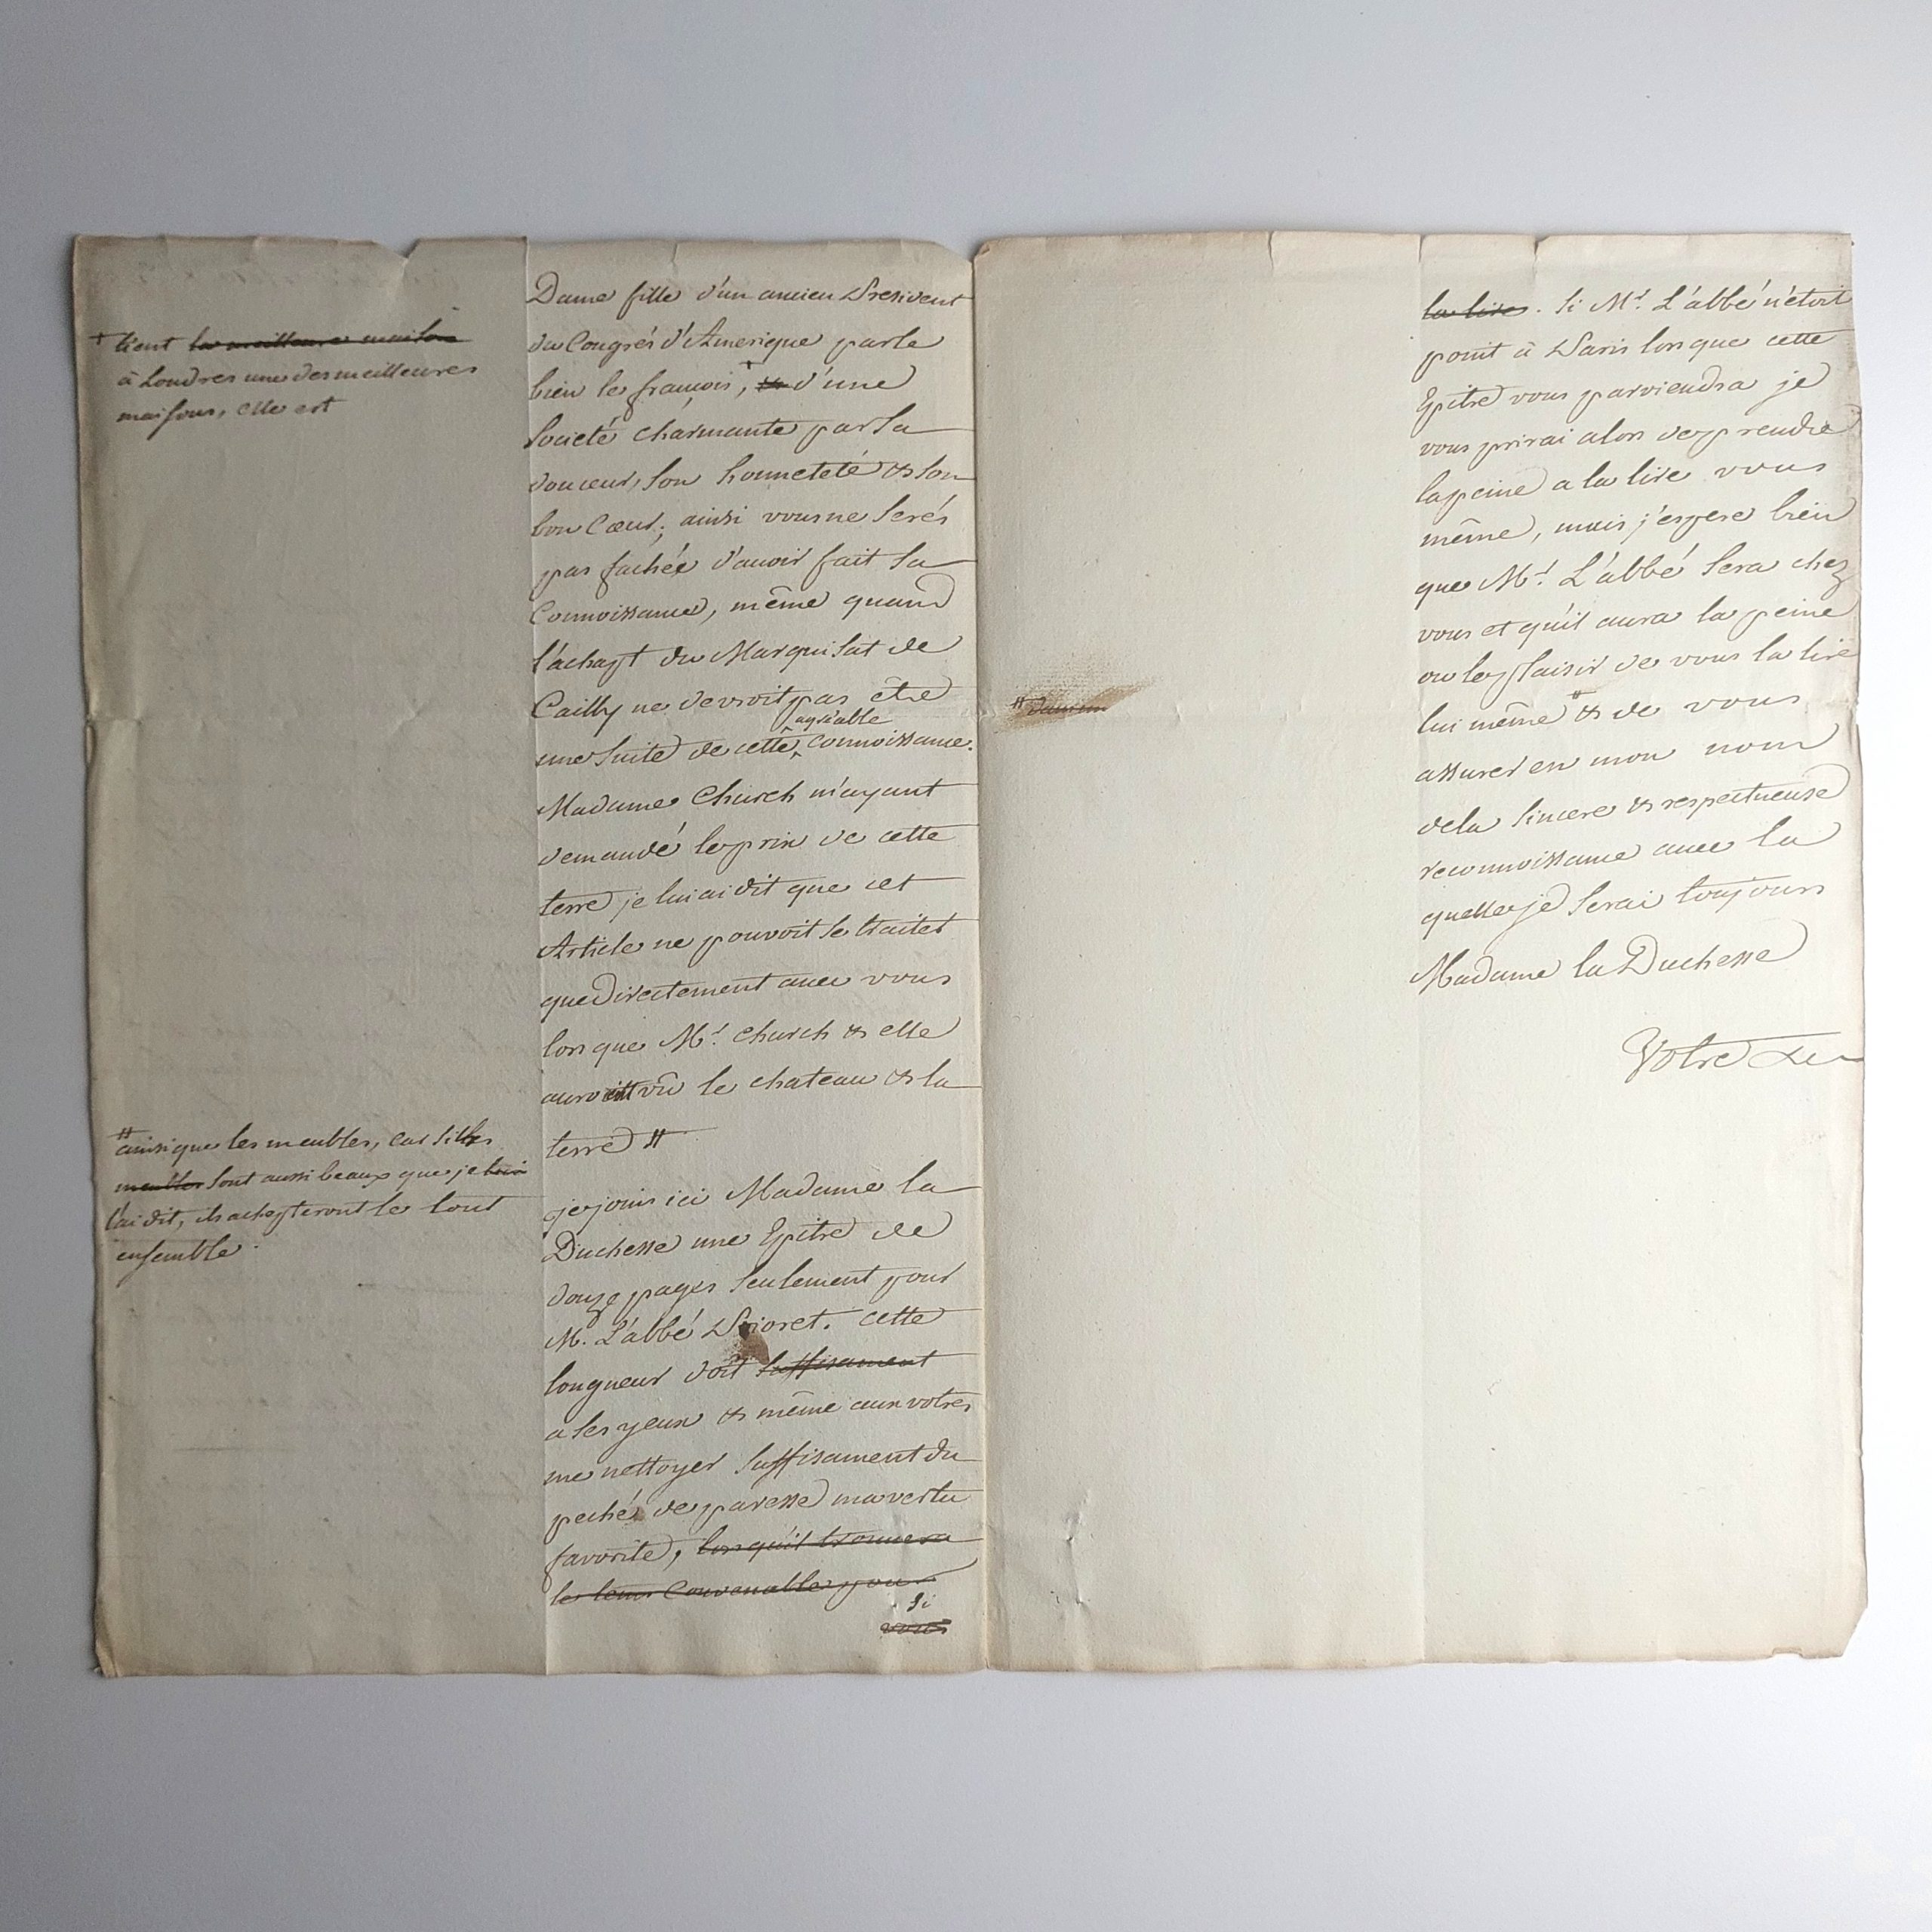 † tient la meilleure maison
à Londres une des meilleures
maisons, elle est
# ainsi que les meubles, car si les
meubles sont aussi beaux que je lui
l'ai dit, ils achepteront le tout
ensemble.
Dame fille d'un ancien President
du Congrés d'Amerique parle
bien le françois, † & d'une
Societé charmante par sa
douceur, son honneteté & son
bon Cœur; ainsi vous ne serés
pas fachée d'avoir fait sa
Connoissance, même quand
l'achapt du Marquisat de
Cailly ne devroit pas etre
agréable
une suite de cette connoissance.
Madame Church m'ayant
demandé le prix de cette
terre je lui ai dit que cet
Article ne pouvoit se traiter
que directement avec vous
lors que Mr. Church & elle
auroient vû le chateau & la
terre #
je joins ici Madame la
Duchesse une Epitre de
douze pages seulement pour
M. L'abbé Prioret. cette
longueur doit suffisament
a ses yeux & même aux votres
me nettoyer suffisament du
peché de paresse ma vertu
favorite, lorsqu'il trouvera
le tems Convenable pour
si
vous
# 
la lire. si Mr. L'abbé n'etoit
point à Paris lors que cette
Epitre vous parviendra je
vous prirai alors de prendre
la peine a la lire vous
même, mais j'espere bien
que Mr. L'abbé sera chez
vous et qu'il aura la peine
ou le plaisir de vous la lire
lui même # & de vous
assurer en mon nom
de la sincere & respectueuse
reconnoissance avec la
quelle je serai toujours
Madame la Duchesse
Votre